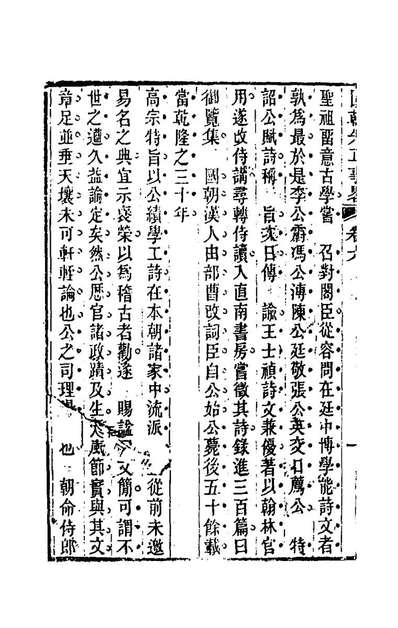 國朝先正事畧 卷六
聖祖留意古學嘗 召對閣臣從容問在廷中博學能詩文者
孰為最於是李公霨馮公溥陳公廷敬張公英交口薦公 特
詔公賦詩稱 旨次日傳 諭王士禎詩文兼優著以翰林官
用遂改侍講尋轉侍讀入直南書房嘗徵其詩錄進三百篇曰
御覽集 國朝漢人由部曹改詞臣自公始公薨後五十餘載
當乾隆之三十年
高宗特旨以公績學工詩在本朝諸家中流派 從前未邀
易名之典宜示褎榮以為稽古者勸遂 賜諡文簡可謂不
世之遭久益論定矣然公歷官諸政蹟及生大風節實與其文
章足並垂天壤未可軒輊論也公之司理 也 朝命侍郎